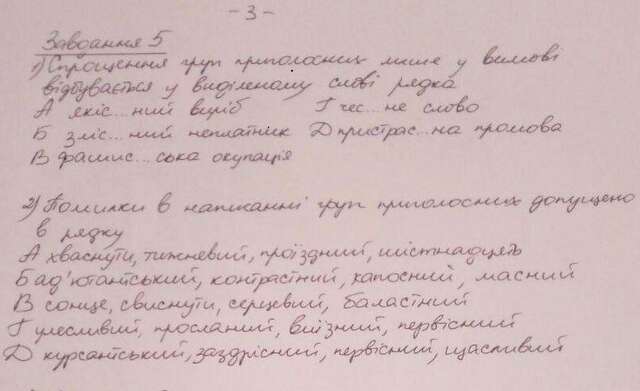 - 3 -
Завдання 5
1) Спрощення груп приголосних лише у вимові
відбувається у виділеному слові рядка
А якіс...ний виріб Г чес...не слово
Б зліс...ний неплатник Д пристрас...на промова
В фашис...ська окупація
2) Помилки в написанні груп приголосних допущено
в рядку
А хваснути, тижневий, проїздний, шістнадцять
Б ад'ютантський, контрастний, капосний, масний
В сонце, свиснути, серцевий, баластний
Г улесливий, прославий, виїзний, первісний
Д курсантський, заздрісний, первісний, щасливий